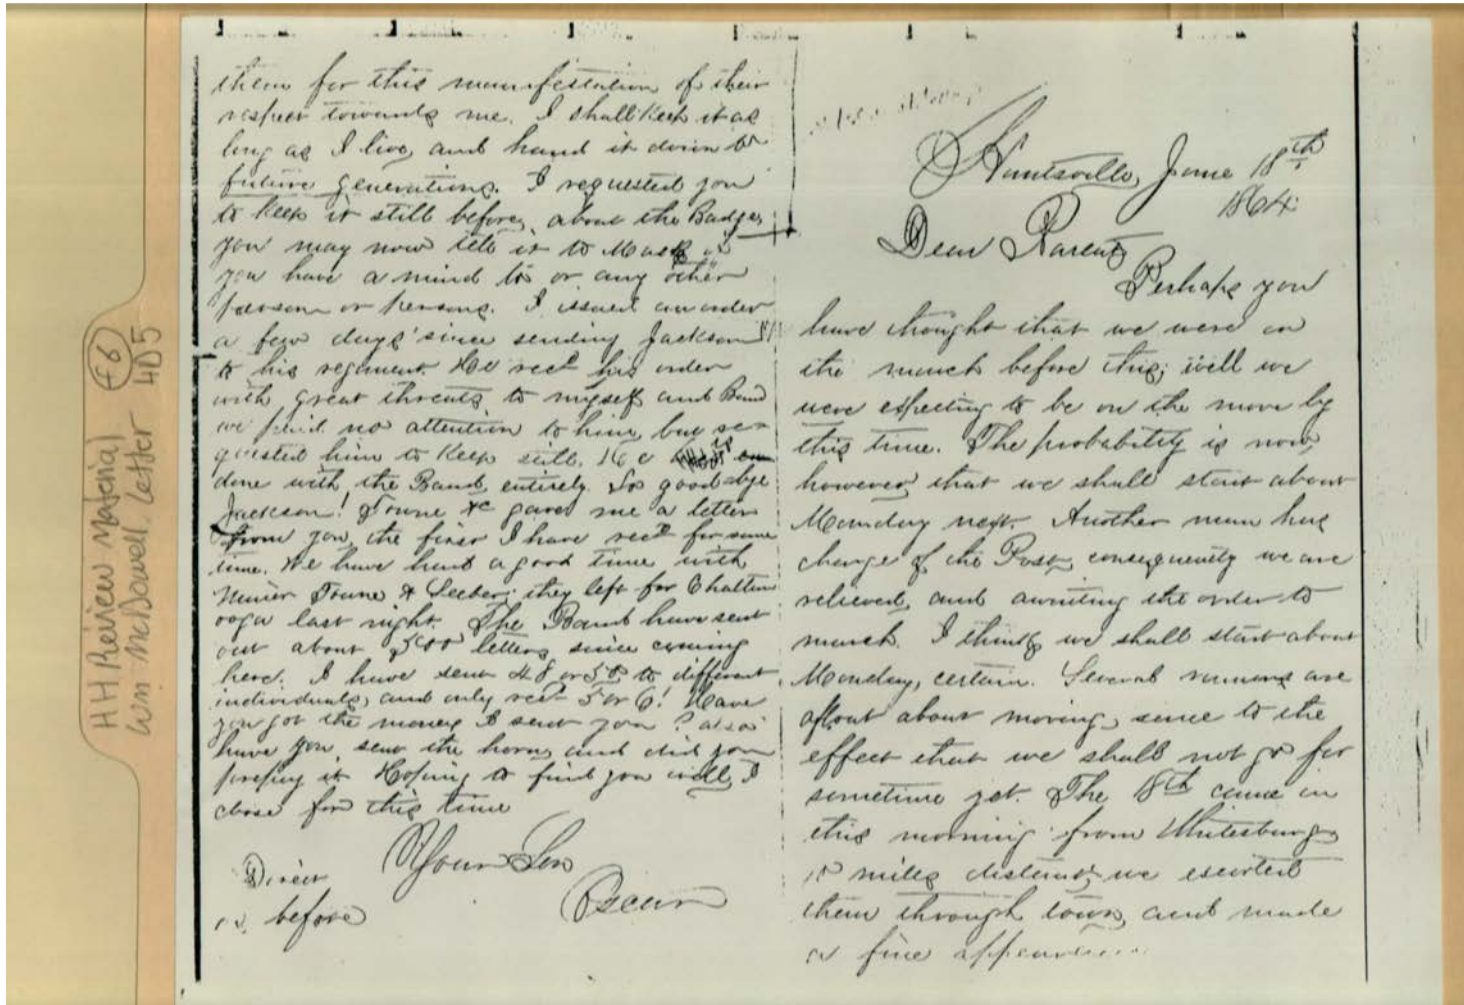 HH Review Material F6
Wm McDowell Letter 4D5
them for this manifestation of their
respect towards me. I shall keep it as
long as I live, and hand it down to
future generations. I requested you
to keep it still before, about the Badge,
you may now tell it to
you have a mind to or any other
person or persons. I issued an order
a few days since sending Jackson
to his regiment. He recd his order
with great threats to myself and Band
we paid no attention to him, but re-
quested him to keep still. He is
done with the Band, entirely. So good-bye
Jackson! Towne &c gave me a letter
from you, the first I have recd for some
time. We have had a good time with
Minier Towne & Seeber; they left for Chattan
ooga last night. The Band have sent
out about 500 letters since coming
here. I have sent 48 or 50 to different
individuals, and only recd 5 or 6! Have
you got the money I sent you? also
have you sent the horn, and did you
prepay it. Hoping to find you well, I
close for this time
Your Son
Oscar
Direct
as before
Huntsville, June 18th
1864.
Dear Parents
Perhaps you
have thought that we were on
the march before this; well we
were expecting to be on the move by
this time. The probability is now,
however, that we shall start about
Monday next. Another man has
charge of the Post, consequently we are
relieved, and awaiting the order to
march. I think we shall start about
Monday, certain. Several rumors are
afloat about moving, some to the
effect that we shall not go for
sometime yet. The 18th came in
this morning from Whitesburg
10 miles distant; we escorted
them through town, and made
a fine appearance